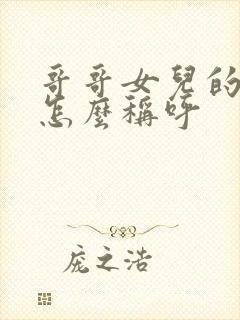 哥哥女兒的
怎麼稱呼
庞之浩